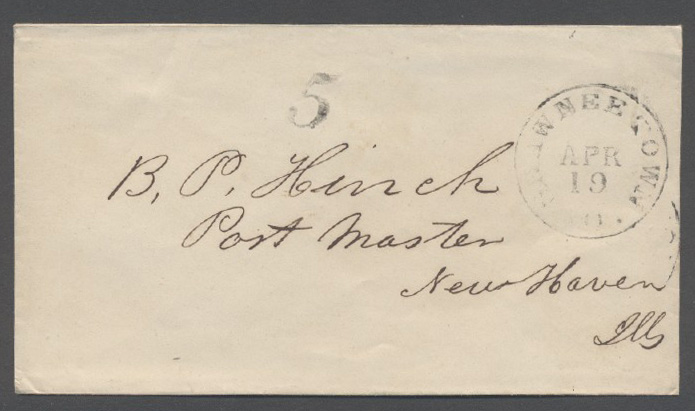 5
SHAWNEETOWN
APR
19
B. P. Hinch
Post Master
New Haven
Ills